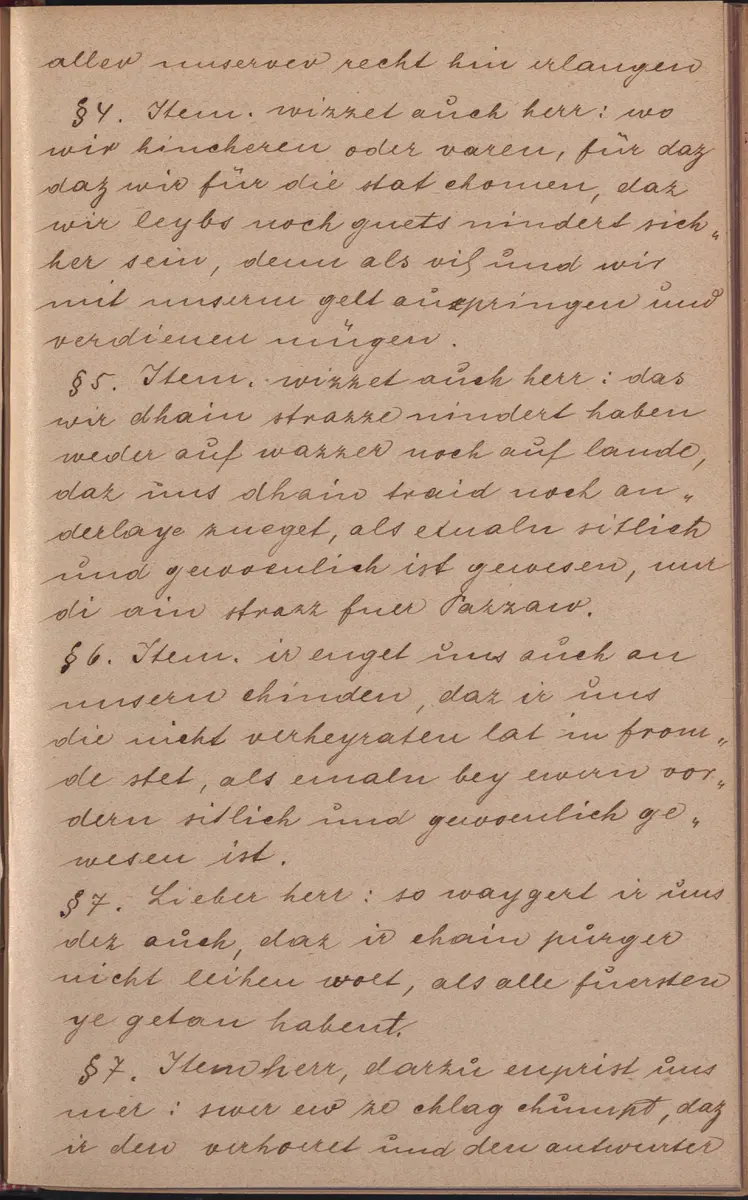 aller unserver recht hin erlangen
§ 4. Item. wizzet auch herr: wo
wir hincheren oder varen, für daz
daz wir für die stat chomen, daz
wir leybs noch guets nindert sich„
her sein, denn als vil und wir
mit unserm gelt auzpringen und
verdienen mügen.
§ 5. Item. wizzet auch herr: das
wir dhain strazze nindert haben
weder auf wazzer noch auf lande,
daz uns dhain traid noch an„
derlaye zueget, als etualn sitlich
und gewoenlich ist gewesen, nur
di ain strazz fuer Pazzaw.
§ 6. Item. ir enget uns auch an
unsern chinden, daz ir uns
die nicht verheyraten lat in from„
de stet, als emaln bey ewern vor„
dern sitlich und gewoenlich ge„
wesen ist.
§ 7. Lieber herr: so waygert ir uns
dez auch, daz ir chain purger
nicht leihen wolt, als alle fuersten
ye getan habent.
§ 7. Item herr, darzu enprist uns
mer: swer ew ze chlag chumpt, daz
ir den verhoeret und den antwurter